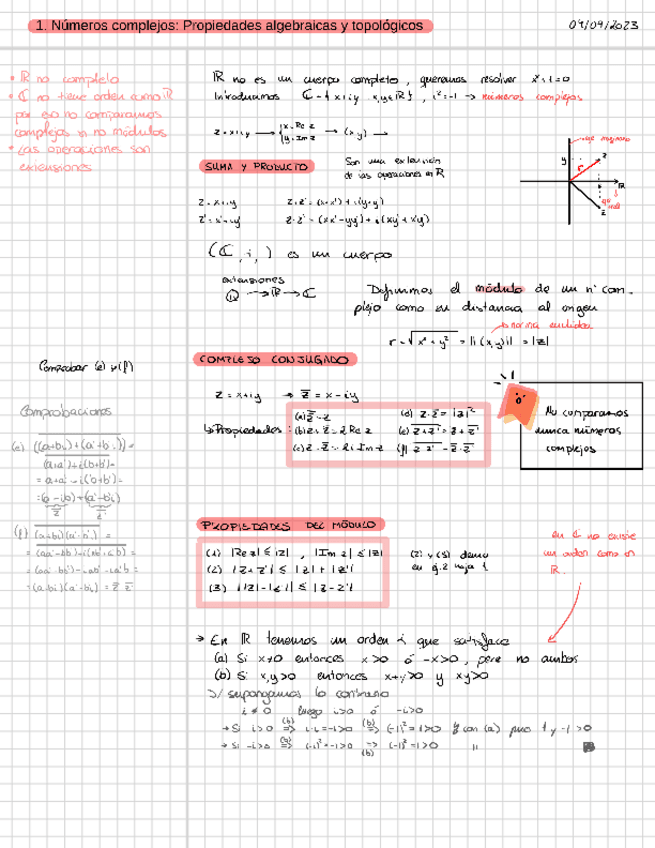 1. Números complejos: Propiedades algebraicas y topológicos
04/09/2023
• ℝ no completo
• ℂ no tiene orden como ℝ
por eso no comparamos
complejos sí no módulos
• Las operaciones son
extensiones
ℝ no es un cuerpo completo, queremos resolver x²+1=0
Introducimos ℂ = { x+iy x,y∈ℝ }, i²=-1 → números complejos
z = x+iy → { x = Re z
y = Im z → (x,y) →
SUMA Y PRODUCTO
Son una extensión
de las operaciones en ℝ
z = x+iy z+z' = (x+x') + i(y+y')
z' = x'+iy' z·z' = (xx'-yy') + i(xy'+x'y)
(ℂ, +, ·) es un cuerpo
extensiones
ℚ → ℝ → ℂ
Definimos el módulo de un nº com-
plejo como su distancia al origen
norma euclídea
r = √x²+y² = ||(x,y)|| = |z|
COMPLEJO CONJUGADO
z = x+iy → z̅ = x-iy
↳ Propiedades:
(a) z̿ = z (d) z·z̅ = |z|²
(b) z+z̅ = 2 Re z (e) z+z' = z̅+z̅'
(c) z-z̅ = 2i Im z (f) z·z' = z̅·z̅'
No comparamos
nunca números
complejos
Comprobar (e) y (f)
Comprobaciones
(e) ((a+bi)+(a'+b'i)) =
(a+a')+i(b+b') =
= a+a'-i(b+b') =
= (a-ib)+(a'-b'i)
z̅ z̅'
(f) (a+bi)(a'+b'i) =
= (aa'-bb')+i(ab'+a'b) =
= (aa'-bb')-iab'-ia'b =
= (a-bi)(a'-b'i) = z̅ z̅'
PROPIEDADES DEL MÓDULO
(1) |Re z| ≤ |z|, |Im z| ≤ |z|
(2) |z+z'| ≤ |z|+|z'|
(3) ||z|-|z'|| ≤ |z-z'|
(2) y (3) demo
en ej.2 hoja 1
en ℂ no existe
un orden como en
ℝ.
→ En ℝ tenemos un orden < que satisface
(a) Si x≠0 entonces x>0 ó -x>0, pero no ambos
(b) Si x,y>0 entonces x+y>0 y xy>0
D/ supongamos lo contrario
i≠0 luego i>0 ó -i>0
→ Si i>0 ⇒(b) i·i=-1>0 ⇒(b) (-1)²=1>0 con (a) pues 1 y -1>0
→ Si -i>0 ⇒(b) (-i)²=-1>0 ⇒(b) (-1)²=1>0 "